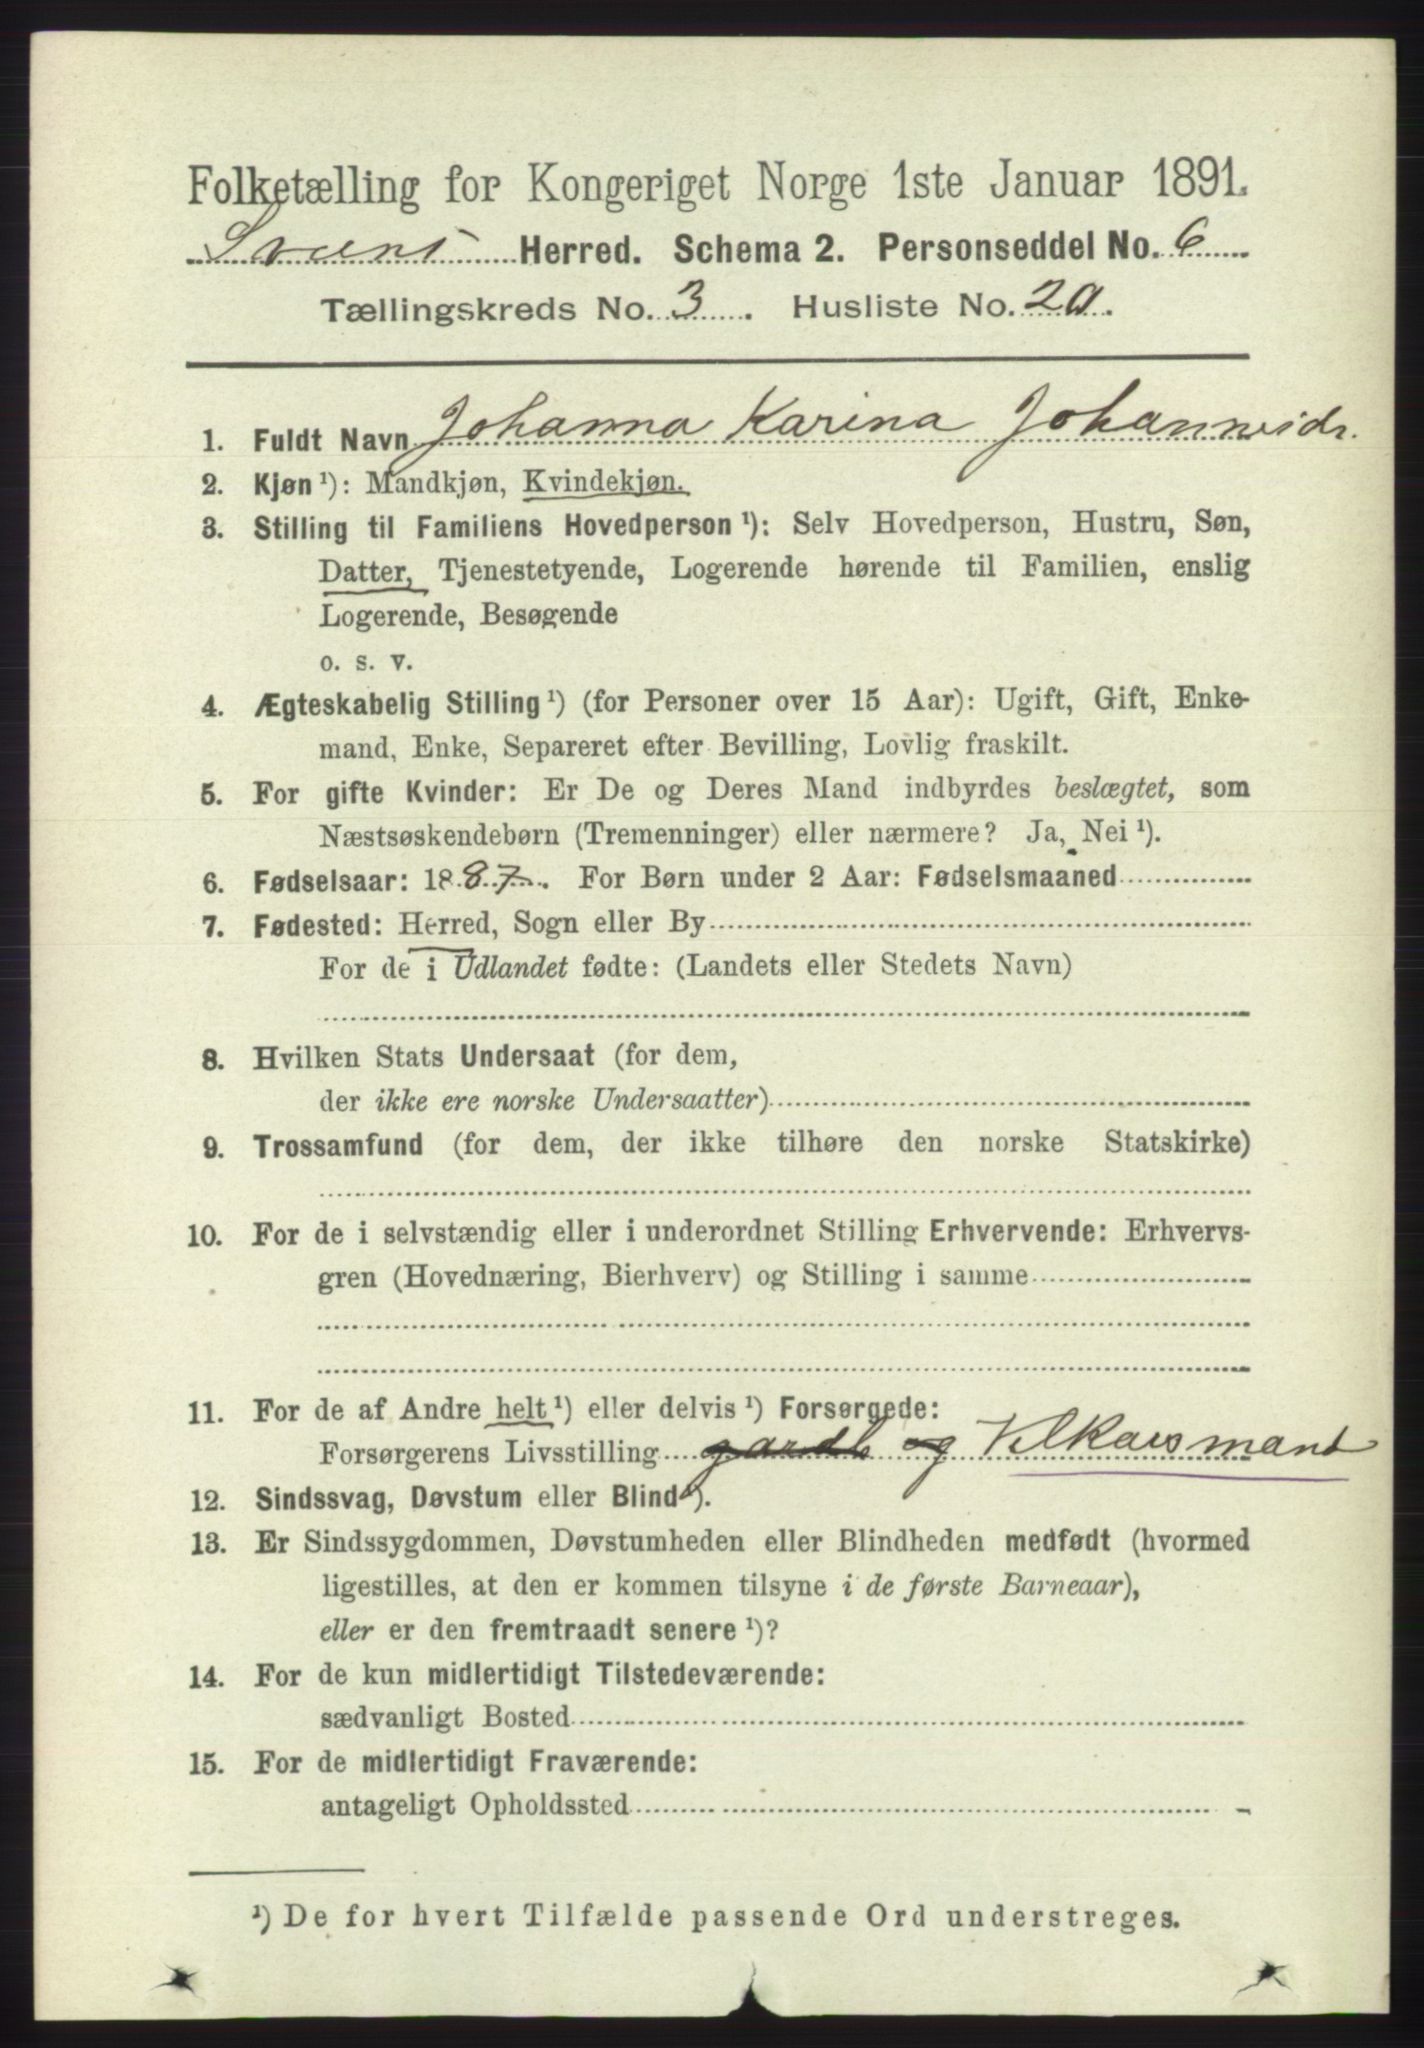 Folketælling for Kongeriget Norge 1ste Januar 1891.
Herred. Schema 2. Personseddel No. 6
Tællingskreds No. 3. Husliste No. 20.
1. Fuldt Navn Johanna Karina Johannesdr.
2. Kjøn ¹): Mandkjøn, Kvindekjøn.
3. Stilling til Familiens Hovedperson ¹): Selv Hovedperson, Hustru, Søn,
Datter, Tjenestetyende, Logerende hørende til Familien, enslig
Logerende, Besøgende
o. s. v.
4. Ægteskabelig Stilling ¹) (for Personer over 15 Aar): Ugift, Gift, Enke-
mand, Enke, Separeret efter Bevilling, Lovlig fraskilt.
5. For gifte Kvinder: Er De og Deres Mand indbyrdes beslægtet, som
Næstsøskendebørn (Tremenninger) eller nærmere? Ja, Nei ¹).
6. Fødselsaar: 1887. For Børn under 2 Aar: Fødselsmaaned
7. Fødested: Herred, Sogn eller By
For de i Udlandet fødte: (Landets eller Stedets Navn)
8. Hvilken Stats Undersaat (for dem,
der ikke ere norske Undersaatter)
9. Trossamfund (for dem, der ikke tilhøre den norske Statskirke)
10. For de i selvstændig eller i underordnet Stilling Erhvervende: Erhvervs-
gren (Hovednæring, Bierhverv) og Stilling i samme
11. For de af Andre helt ¹) eller delvis ¹) Forsørgede:
Forsørgerens Livsstilling gardb og
12. Sindssvag, Døvstum eller Blind ¹).
13. Er Sindssygdommen, Døvstumheden eller Blindheden medfødt (hvormed
ligestilles, at den er kommen tilsyne i de første Barneaar),
eller er den fremtraadt senere ¹)?
14. For de kun midlertidigt Tilstedeværende:
sædvanligt Bosted
15. For de midlertidigt Fraværende:
antageligt Opholdssted
¹) De for hvert Tilfælde passende Ord understreges.